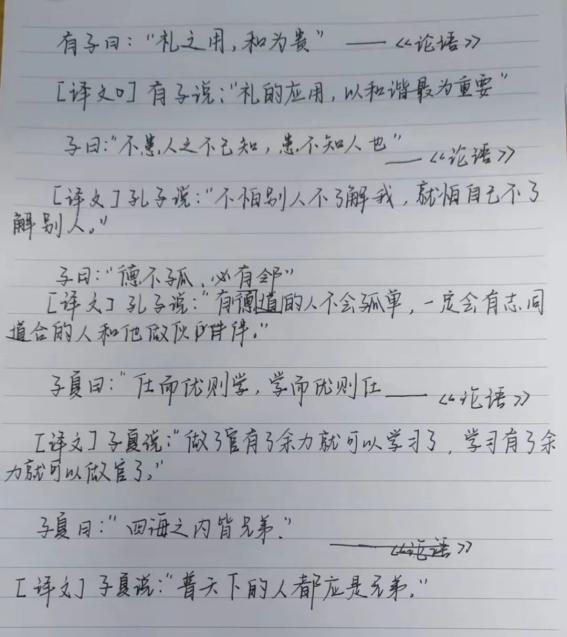 有子曰：“礼之用，和为贵” ——《论语》
[译文]有子说：“礼的应用，以和谐最为重要”
子曰：“不患人之不己知，患不知人也” ——《论语》
[译文]孔子说：“不怕别人不了解我，就怕自己不了
解别人。”
子曰：“德不孤、必有邻”
[译文]孔子说：“有德道的人不会孤单，一定会有志同
道合的人和他做伙伴。”
子夏曰：“仕而优则学，学而优则仕 ——《论语》
[译文]子夏说：“做了官有了余力就可以学习了，学习有了余
力就可以做官了。”
子夏曰：“四海之内皆兄弟。”
——《论语》
[译文]子夏说：“普天下的人都应是兄弟。”